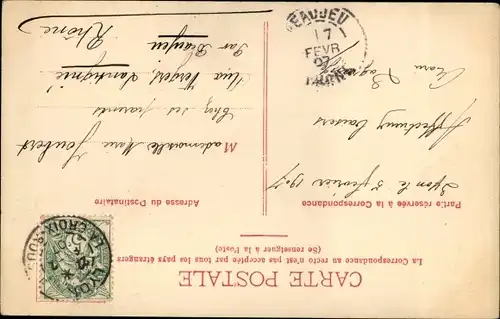 CARTE POSTALE
La Correspondance au recto n'est pas acceptée par tous les pays étrangers
(Se renseigner à la Poste)
Partie réservée à la Correspondance
Adresse du Destinataire
Lyon le 5 février 1907
Affectueux baisers
Mademoiselle Marie Joubert
Chez ses parents
Par Beaujeu
Rhône
BEAUJEU
17
FEVR
07
RHONE
LYON
CROIX-ROUSSE